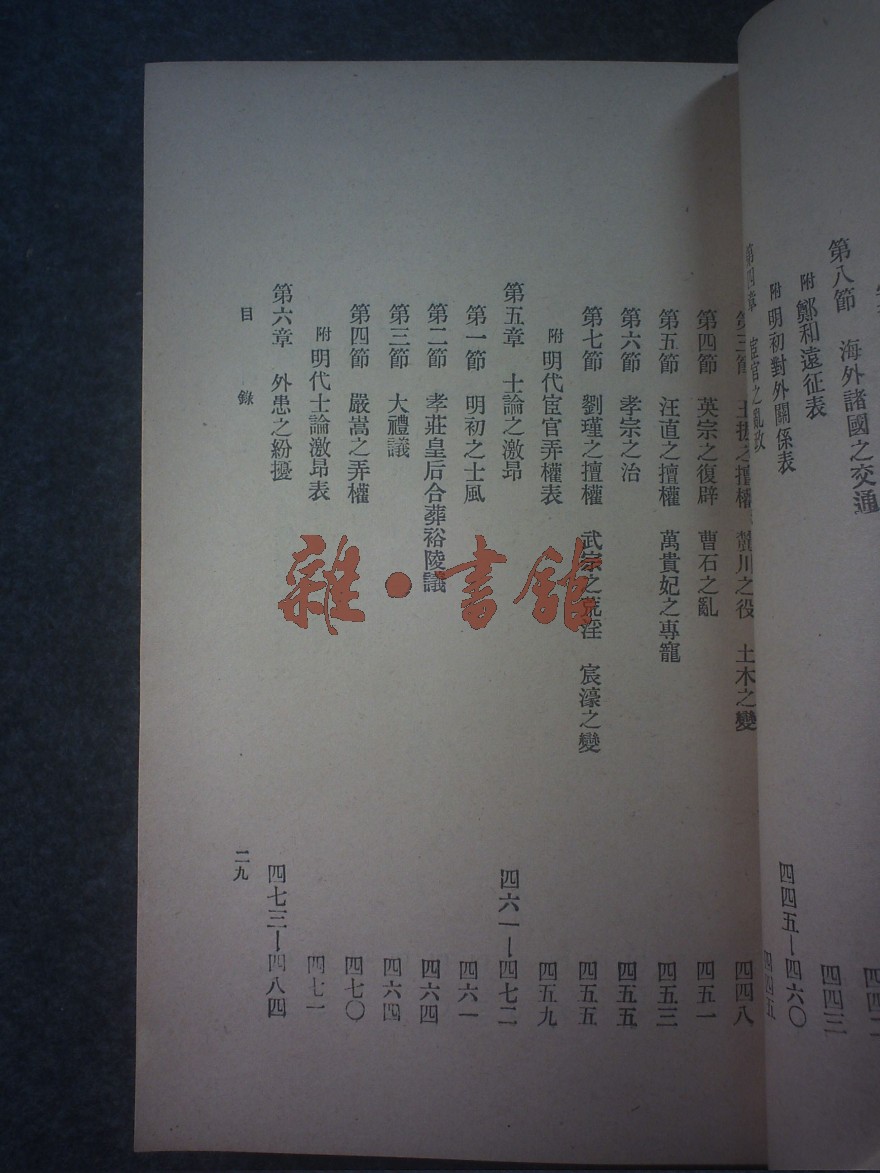 第八節　海外諸國之交通
附　鄭和遠征表　四四三
附　明初對外關係表
第四章　宦官之亂政　四四五—四六〇
四四五
第三節　王振之擅權　麓川之役　土木之變　四四八
第四節　英宗之復辟　曹石之亂　四五一
第五節　汪直之擅權　萬貴妃之專寵　四五三
第六節　孝宗之治　四五五
第七節　劉瑾之擅權　武宗之荒淫　宸濠之變　四五五
附　明代宦官弄權表　四五九
第五章　士論之激昂　四六一—四七二
第一節　明初之士風　四六一
第二節　孝莊皇后合葬裕陵議　四六四
第三節　大禮議　四六四
第四節　嚴嵩之弄權　四七〇
附　明代士論激昂表　四七一
第六章　外患之紛擾　四七三—四八四
目　錄　二九
雜·書館